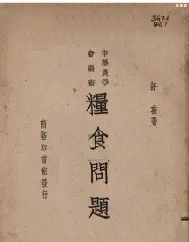 許璇著
中華農學
會叢書
糧食問題
商務印書館發行